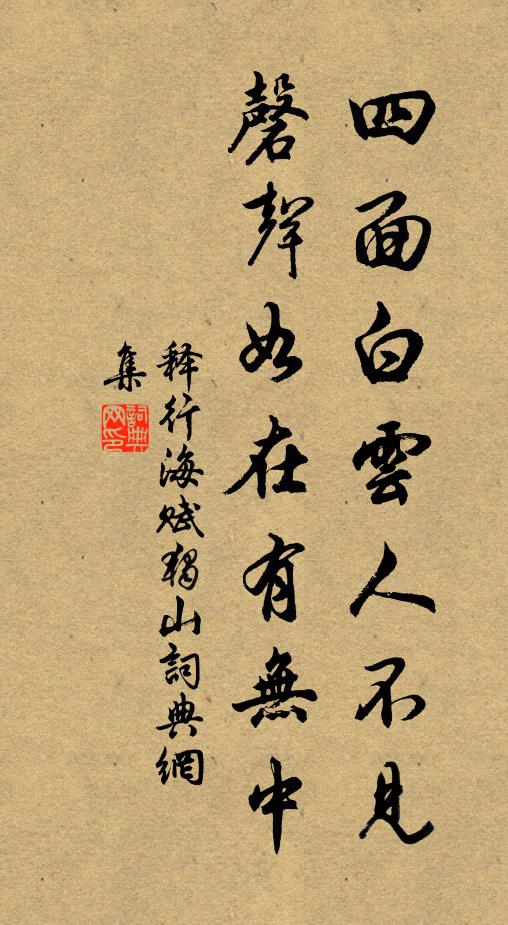 四面白雲人不見
磬聲如在有無中
释行海赋獨山詞典網
集
詞典網印